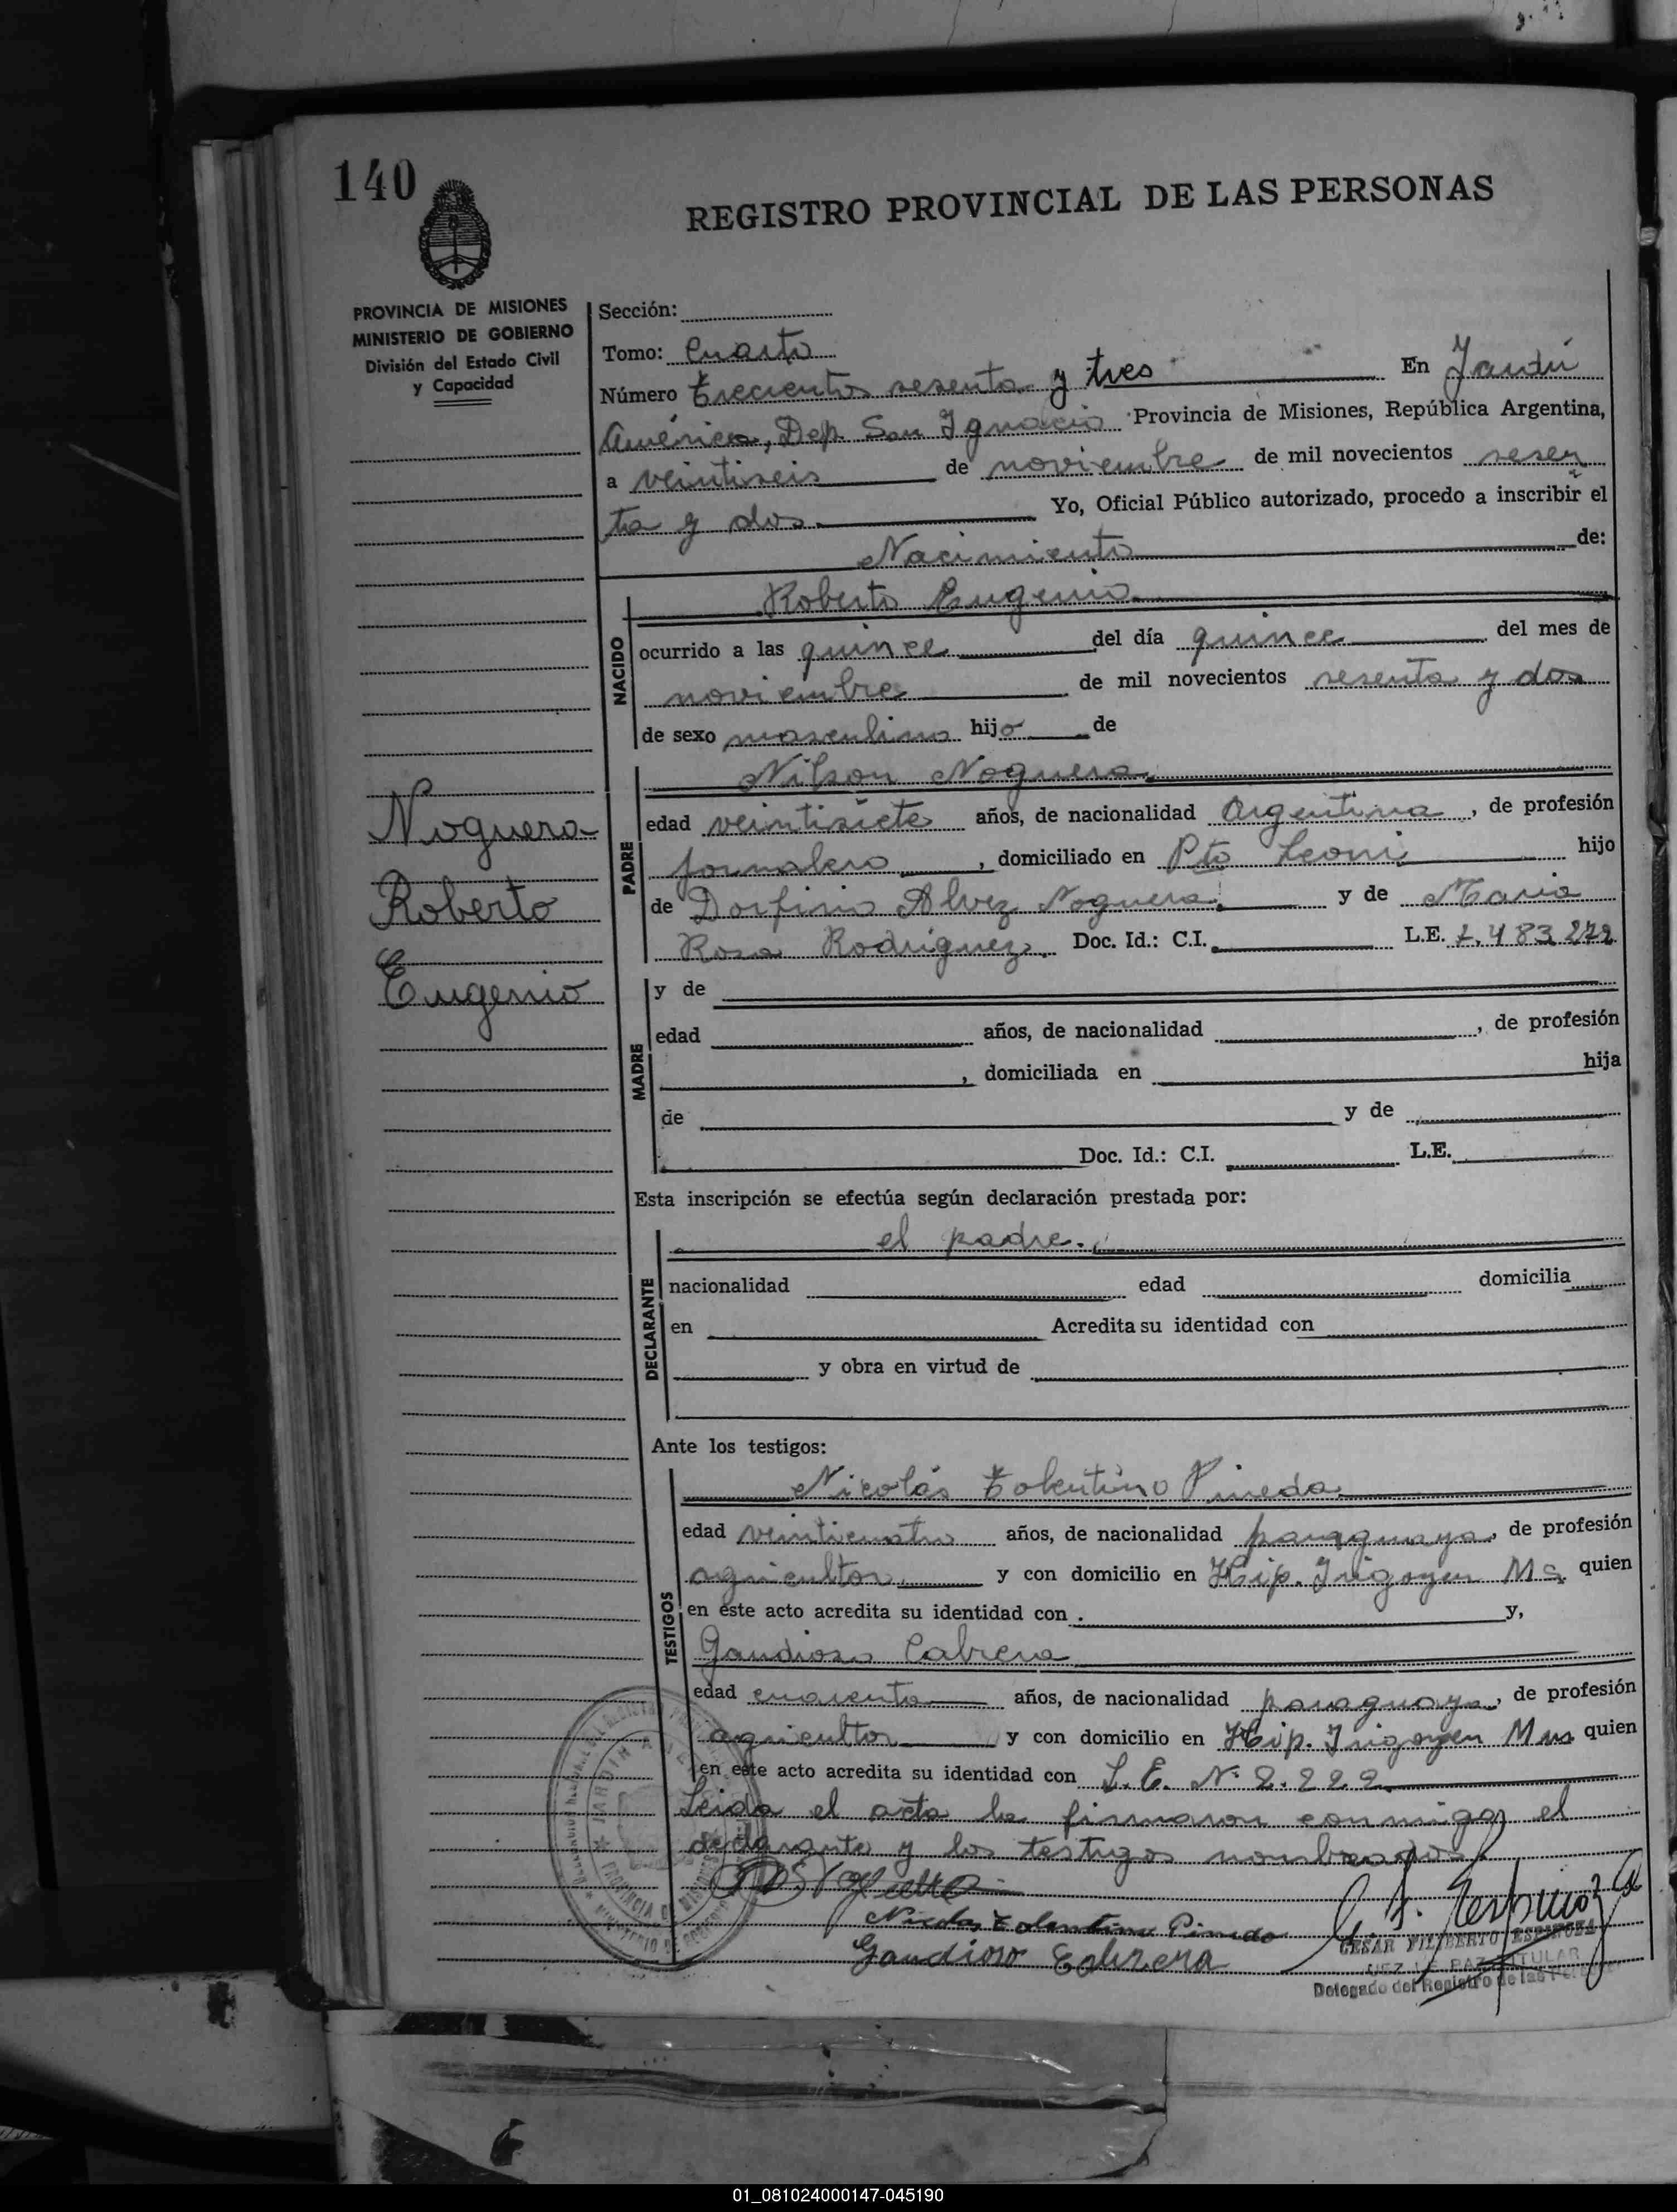 140
REGISTRO PROVINCIAL DE LAS PERSONAS
PROVINCIA DE MISIONES
MINISTERIO DE GOBIERNO
División del Estado Civil
y Capacidad
Sección:
Tomo: Cuarto
Número trecientos sesenta y tres En Jardín
América, Dep. San Ignacio Provincia de Misiones, República Argentina,
a veintiseis de noviembre de mil novecientos sesen
ta y dos. Yo, Oficial Público autorizado, procedo a inscribir el
Nacimiento de:
NACIDO
Roberto Eugenio.
ocurrido a las quince del día quince del mes de
noviembre de mil novecientos sesenta y dos
de sexo masculino hijo de
PADRE
Nilson Noguera.
edad veintisiete años, de nacionalidad Argentina, de profesión
jornalero, domiciliado en Pto Leoni hijo
de Dorfirio Alvez Noguera. y de Maria
Rosa Rodriguez. Doc. Id.: C.I. L.E. 7.483.272
Noguera
Roberto
Eugenio
MADRE
y de
edad años, de nacionalidad , de profesión
, domiciliada en hija
de y de
Doc. Id.: C.I. L.E.
Esta inscripción se efectúa según declaración prestada por:
DECLARANTE
el padre.
nacionalidad edad domicilia
en Acredita su identidad con
y obra en virtud de
Ante los testigos:
TESTIGOS
Nicolás Tolentino Pineda
edad veinticuatro años, de nacionalidad paraguaya, de profesión
agricultor y con domicilio en Hip. Irigoyen Ms. quien
en este acto acredita su identidad con . y,
Gaudioso Cabrera
edad cuarenta años, de nacionalidad paraguaya, de profesión
agricultor y con domicilio en Hip. Irigoyen Mns quien
en este acto acredita su identidad con L.E. Nº 2.222
Leida el acta la firmaron conmigo, el
declarante y los testigos nombrados.
Nicolas Tolentino Pineda
Gaudioso Cabrera
CESAR FILIBERTO ESPINOZA
JUEZ DE PAZ TITULAR
Delegado del Registro de las
01_081024000147-045190